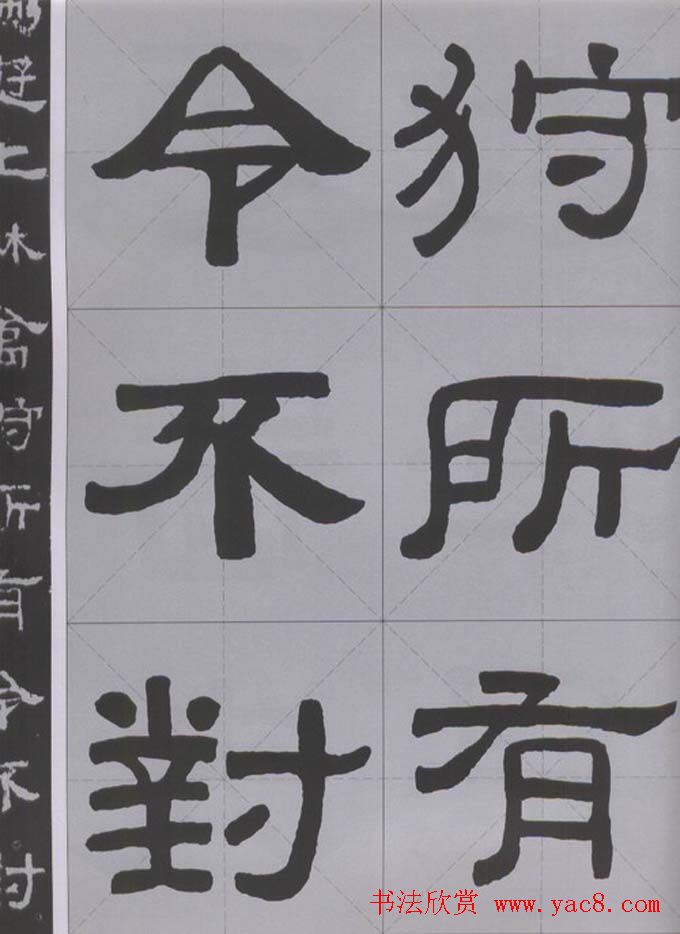 狩所有
令不對
上林禽狩所有令不對
书法欣赏 www.yac8.com